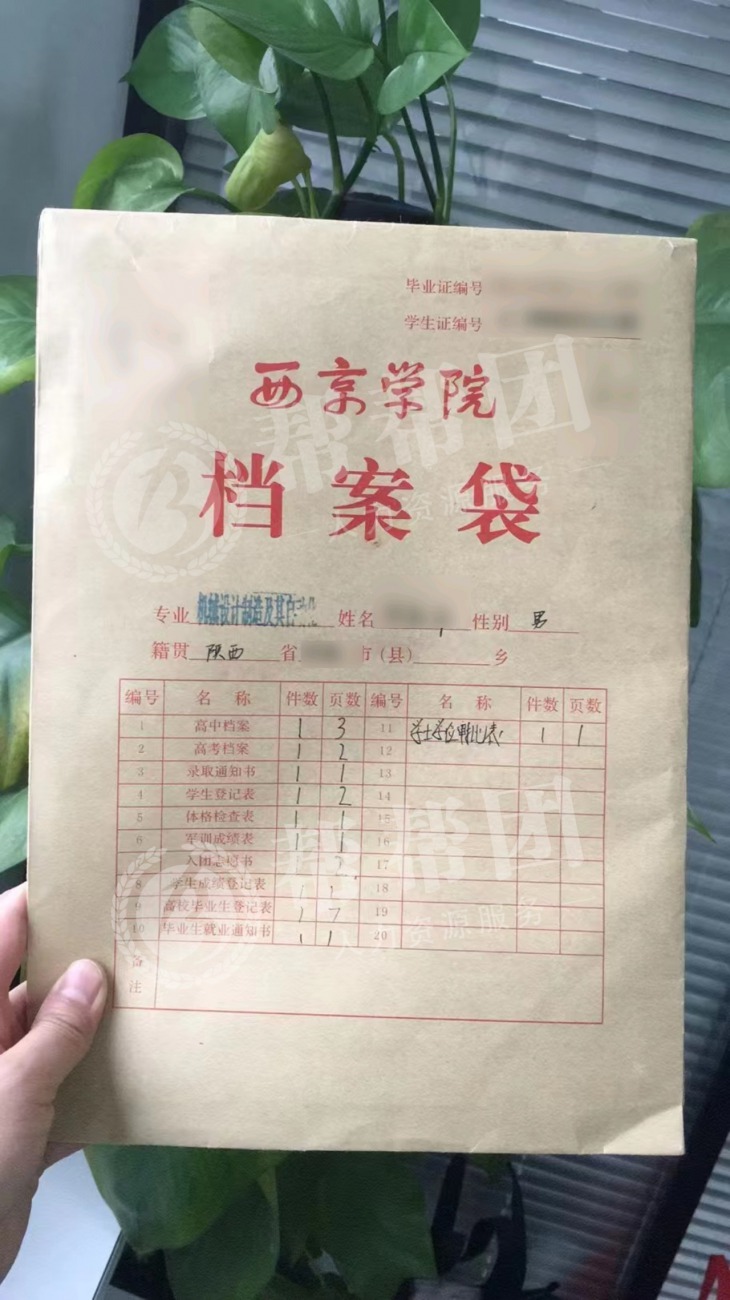 毕业证编号
学生证编号
西京学院
档案袋
专业 机械设计制造及其自动化 姓名 性别 男
籍贯 陕西 省 市(县) 乡
编号 名 称 件数 页数 编号 名 称 件数 页数
1 高中档案 1 3 11 学士学位 表 1 1
2 高考档案 1 2 12
3 录取通知书 1 1 13
4 学生登记表 1 2 14
5 体格检查表 1 1 15
6 军训成绩表 1 1 16
入团志愿书 1 2 17
8 学生成绩登记表 1 1 18
9 高校毕业生登记表 1 7 19
10 毕业生就业通知书 1 1 20
备注
帮帮团
人力资源服务
帮帮团
人力资源服务